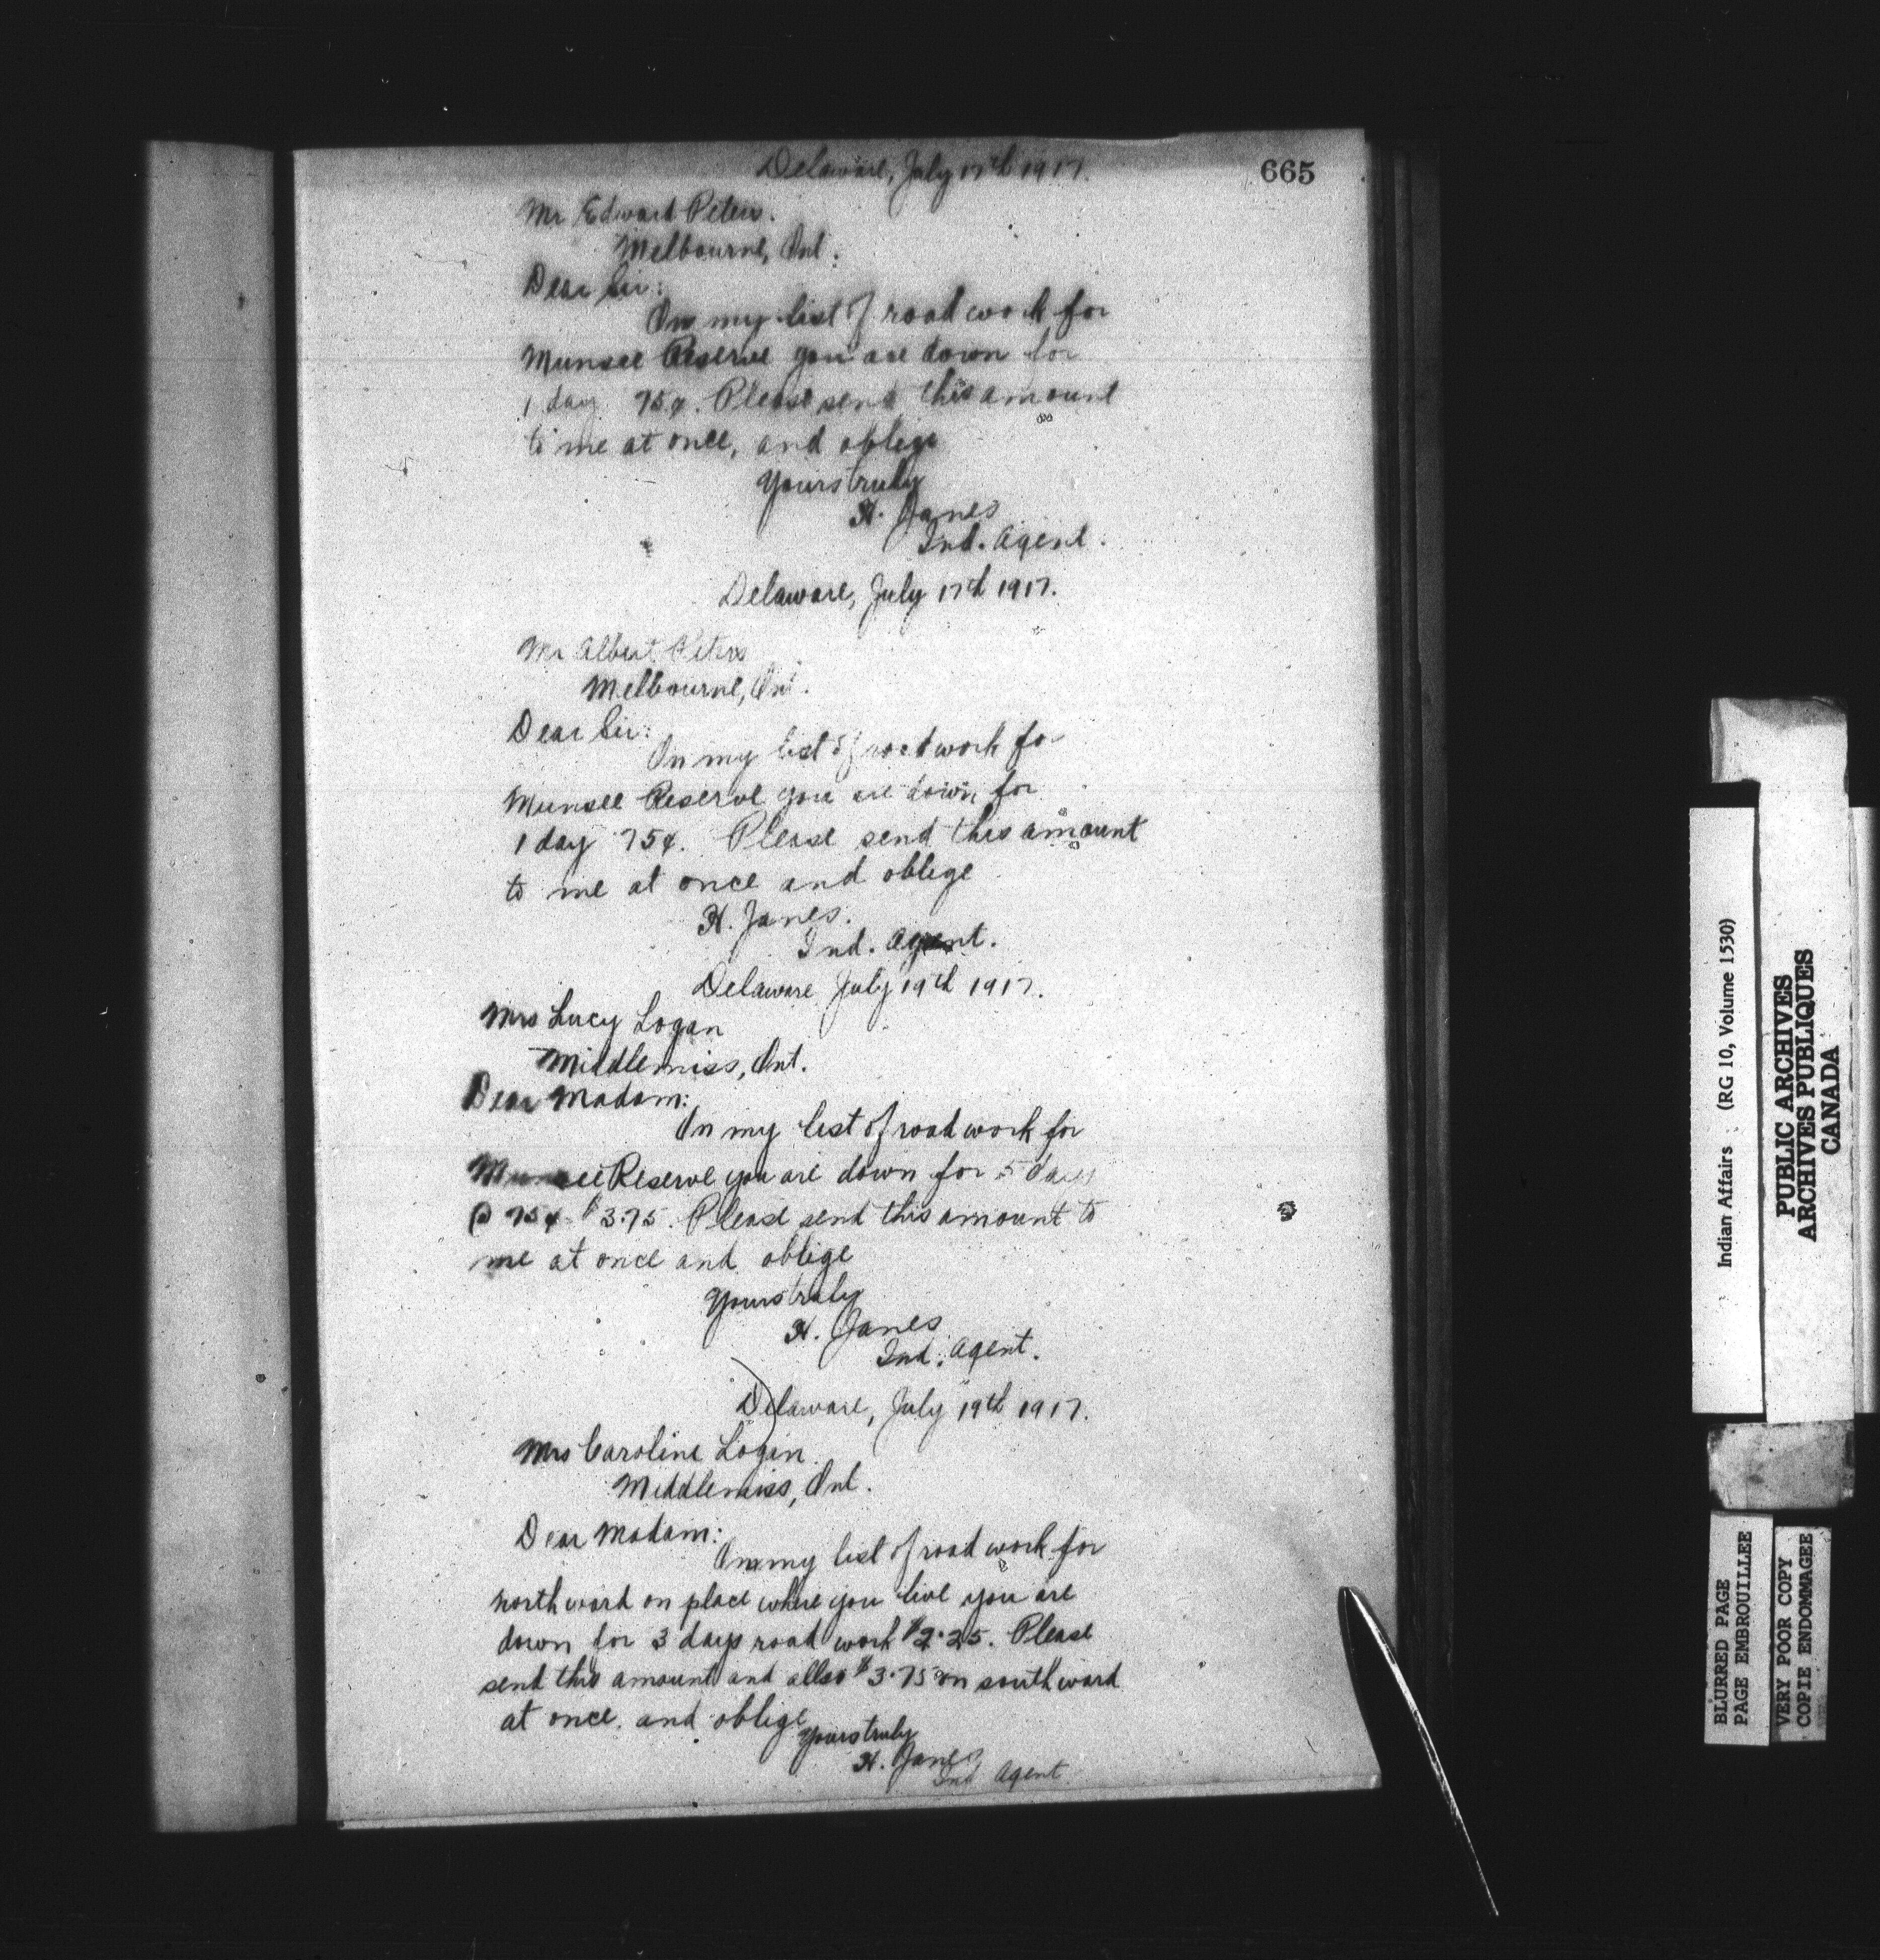 665
Delaware, July 17th 1917.
Mr Edward Peters.
Melbourne, Ont.
Dear Sir:
On my list of road work for
Munsee Reserve you are down for
1 day 75¢. Please send this amount
to me at once, and oblige
Yours truly
H. Janes
Ind. Agent.
Delaware, July 17th 1917.
Mr Albert Peters
Melbourne, Ont.
Dear Sir:
On my list of road work for
Munsee Reserve you are down for
1 day 75¢. Please send this amount
to me at once and oblige
H. Janes.
Ind. Agent.
Delaware July 19th 1917.
Mrs Lucy Logan
Middlemiss, Ont.
Dear Madam:
On my list of road work for
Munsee Reserve you are down for 5 days
@ 75¢ $3.75. Please send this amount to
me at once and oblige
Yours truly
H. Janes
Ind. Agent.
Delaware, July 19th 1917.
Mrs Caroline Login
Middlemiss, Ont.
Dear Madam:
On my list of road work for
north ward on place where you live you are
down for 3 days road work $2.25. Please
send this amount and allso $3.75 on south ward
at once. and oblige
Yours truly
H. Janes
Ind Agent.
Indian Affairs (RG 10, Volume 1530)
PUBLIC ARCHIVES
ARCHIVES PUBLIQUES
CANADA
BLURRED PAGE
PAGE EMBROUILLEE
VERY POOR COPY
COPIE ENDOMMAGEE